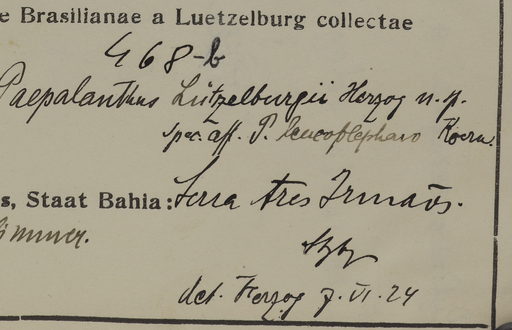 e Brasilianae a Luetzelburg collectae
468-b
Paepalanthus Lützelburgii Herzog n. sp.
spec. aff. P. leucoblepharo Koern.
s, Staat Bahia: Serra tres Irmãos.
det. Herzog 7. VI. 24